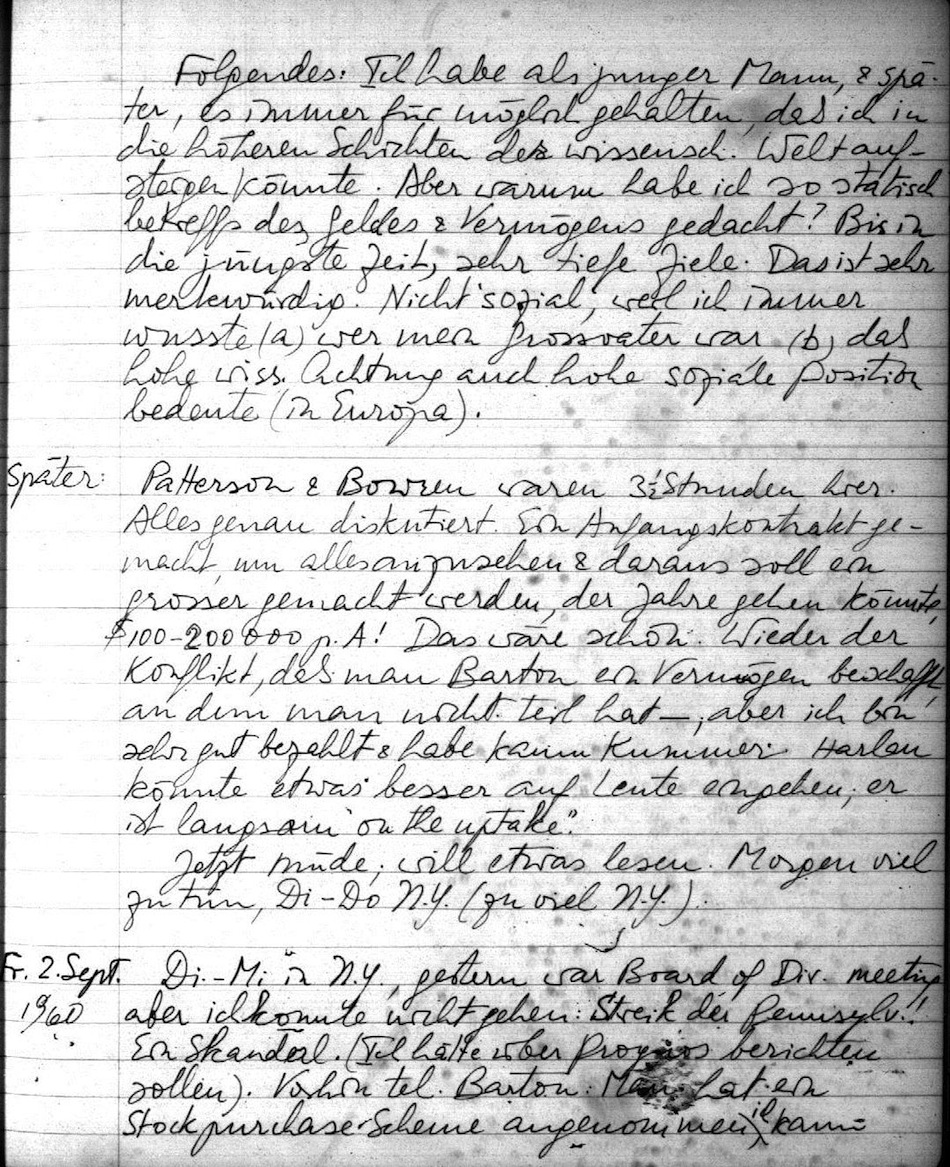 Folgendes: Ich habe als junger Mann, & spä-
ter, es immer für möglich gehalten, das ich in
die höheren Schichten der wissensch. Welt auf-
steigen könnte. Aber warum habe ich so statisch
betreffs des Geldes & Vermögens gedacht? Bis in
die jüngste Zeit, sehr tiefe Ziele. Das ist sehr
merkwürdig. Nicht sozial, weil ich immer
wusste (a) wer mein Grossvater war (b) das
hohe wiss. Achtung auch hohe soziale Position
bedeute (in Europa).
Später: Patterson & Bowen waren 3½ Stunden hier.
Alles genau diskutiert. Ein Anfangskontrakt ge-
macht, um alles anzusehen & daraus soll ein
grosser gemacht werden, der Jahre gehen könnte,
$100-200 000 p.A! Das wäre schön. Wieder der
Konflikt, das man Barton ein Vermögen beschafft,
an dem man nicht teil hat —, aber ich bin
sehr gut bezahlt & habe kaum Kummer. Harlan
könnte etwas besser auf Leute eingehen; er
ist langsam "on the uptake".
Jetzt müde; will etwas lesen. Morgen viel
zu tun, Di-Do N.Y. (zu viel N.Y.).
Fr. 2. Sept. Di.-Mi in N.Y., gestern war Board of Div. meeting
1960 aber ich konnte nicht gehen: Streik der Pennsylv.!
Ein Skandal. (Ich hätte über berichten
sollen). Vorhin tel. Barton: Man hat ein
Stock purchase-Scheme angenommen, ich kann